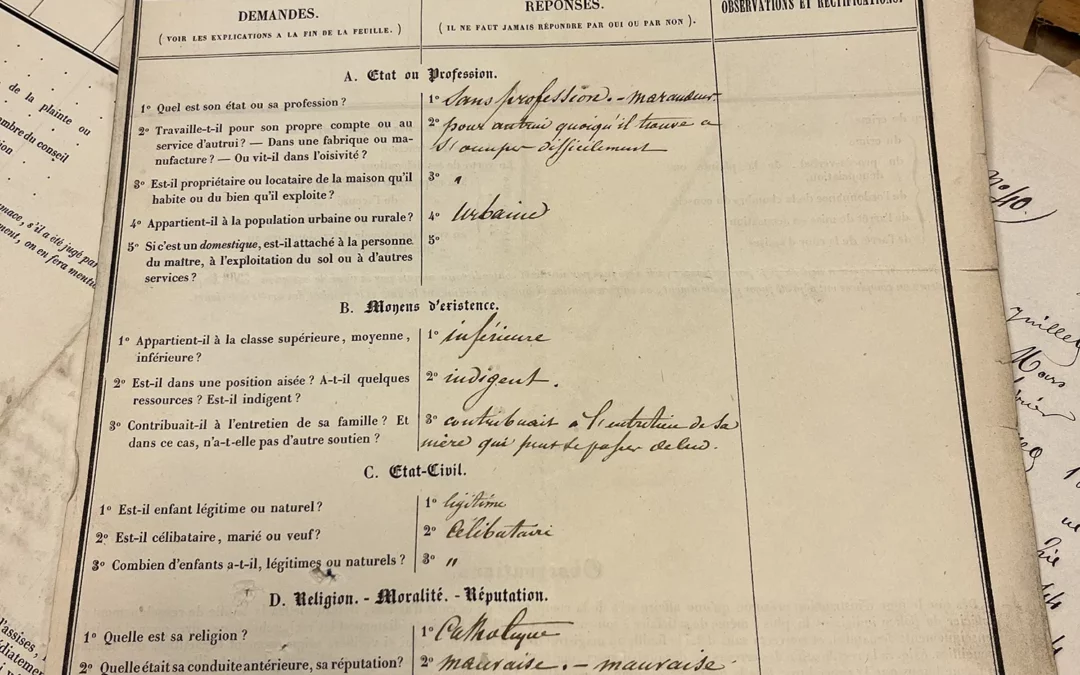 DEMANDES.
(VOIR LES EXPLICATIONS A LA FIN DE LA FEUILLE.)
RÉPONSES.
(IL NE FAUT JAMAIS RÉPONDRE PAR OUI OU PAR NON).
OBSERVATIONS ET RECTIFICATIONS.
A. Etat ou Profession.
1º Quel est son état ou sa profession?
1º Sans profession. - maraudeur.
2º Travaille-t-il pour son propre compte ou au
service d'autrui? — Dans une fabrique ou ma-
nufacture? — Ou vit-il dans l'oisiveté?
2º pour autrui quoiqu'il trouve a
s'occuper difficilement
3º Est-il propriétaire ou locataire de la maison qu'il
habite ou du bien qu'il exploite?
3º "
4º Appartient-il à la population urbaine ou rurale?
4º Urbaine
5º Si c'est un domestique, est-il attaché à la personne
du maître, à l'exploitation du sol ou à d'autres
services?
5º
B. Moyens d'existence.
1º Appartient-il à la classe supérieure, moyenne,
inférieure?
1º inférieure
2º Est-il dans une position aisée? A-t-il quelques
ressources? Est-il indigent?
2º indigent.
3º Contribuait-il à l'entretien de sa famille? Et
dans ce cas, n'a-t-elle pas d'autre soutien?
3º contribuait à l'entretien de sa
mère qui peut se passer de lui.
C. Etat-Civil.
1º Est-il enfant légitime ou naturel?
1º légitime
2º Est-il célibataire, marié ou veuf?
2º Célibataire
3º Combien d'enfants a-t-il, légitimes ou naturels?
3º "
D. Religion. - Moralité. - Réputation.
1º Quelle est sa religion?
1º Catholique
2º Quelle était sa conduite antérieure, sa réputation?
2º mauvaise. - mauvaise
de la plainte ou
mbre du conseil
mace, s'il a été jugé par
ment, on en fera mentio
l'assises,
édiatemen
nº 40.
juillet
Mars